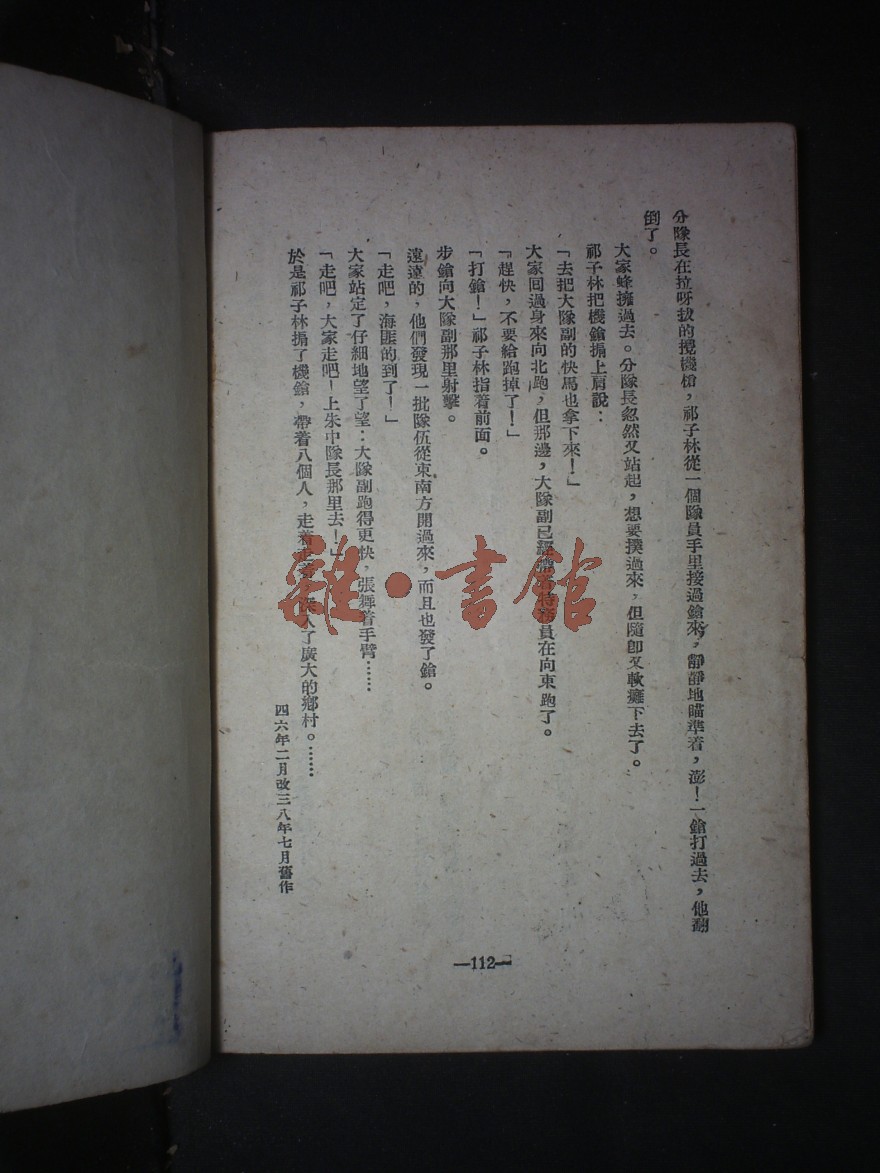 分隊長在拉呀扳的攪機槍，祁子林從一個隊員手里接過鎗來，靜靜地瞄準着，澎！一鎗打過去，他翻
倒了。
大家蜂擁過去。分隊長忽然又站起，想要撲過來，但隨卽又軟攤下去了。
祁子林把機鎗搧上肩說：
「去把大隊副的快馬也拿下來！」
大家回過身來向北跑，但那邊，大隊副已經員在向東跑了。
「趕快，不要給跑掉了！」
「打鎗！」祁子林指着前面。
步鎗向大隊副那里射擊。
遠遠的，他們發現一批隊伍從東南方開過來，而且也發了鎗。
「走吧，海匪的到了！」
大家站定了仔細地望了望：大隊副跑得更快，張舞着手臂……
「走吧，大家走吧！上朱中隊長那里去！」
於是祁子林搧了機鎗，帶着八個人，走着走着，深入了廣大的鄉村。……
四六年二月改三八年七月舊作
—112—
雜·書館